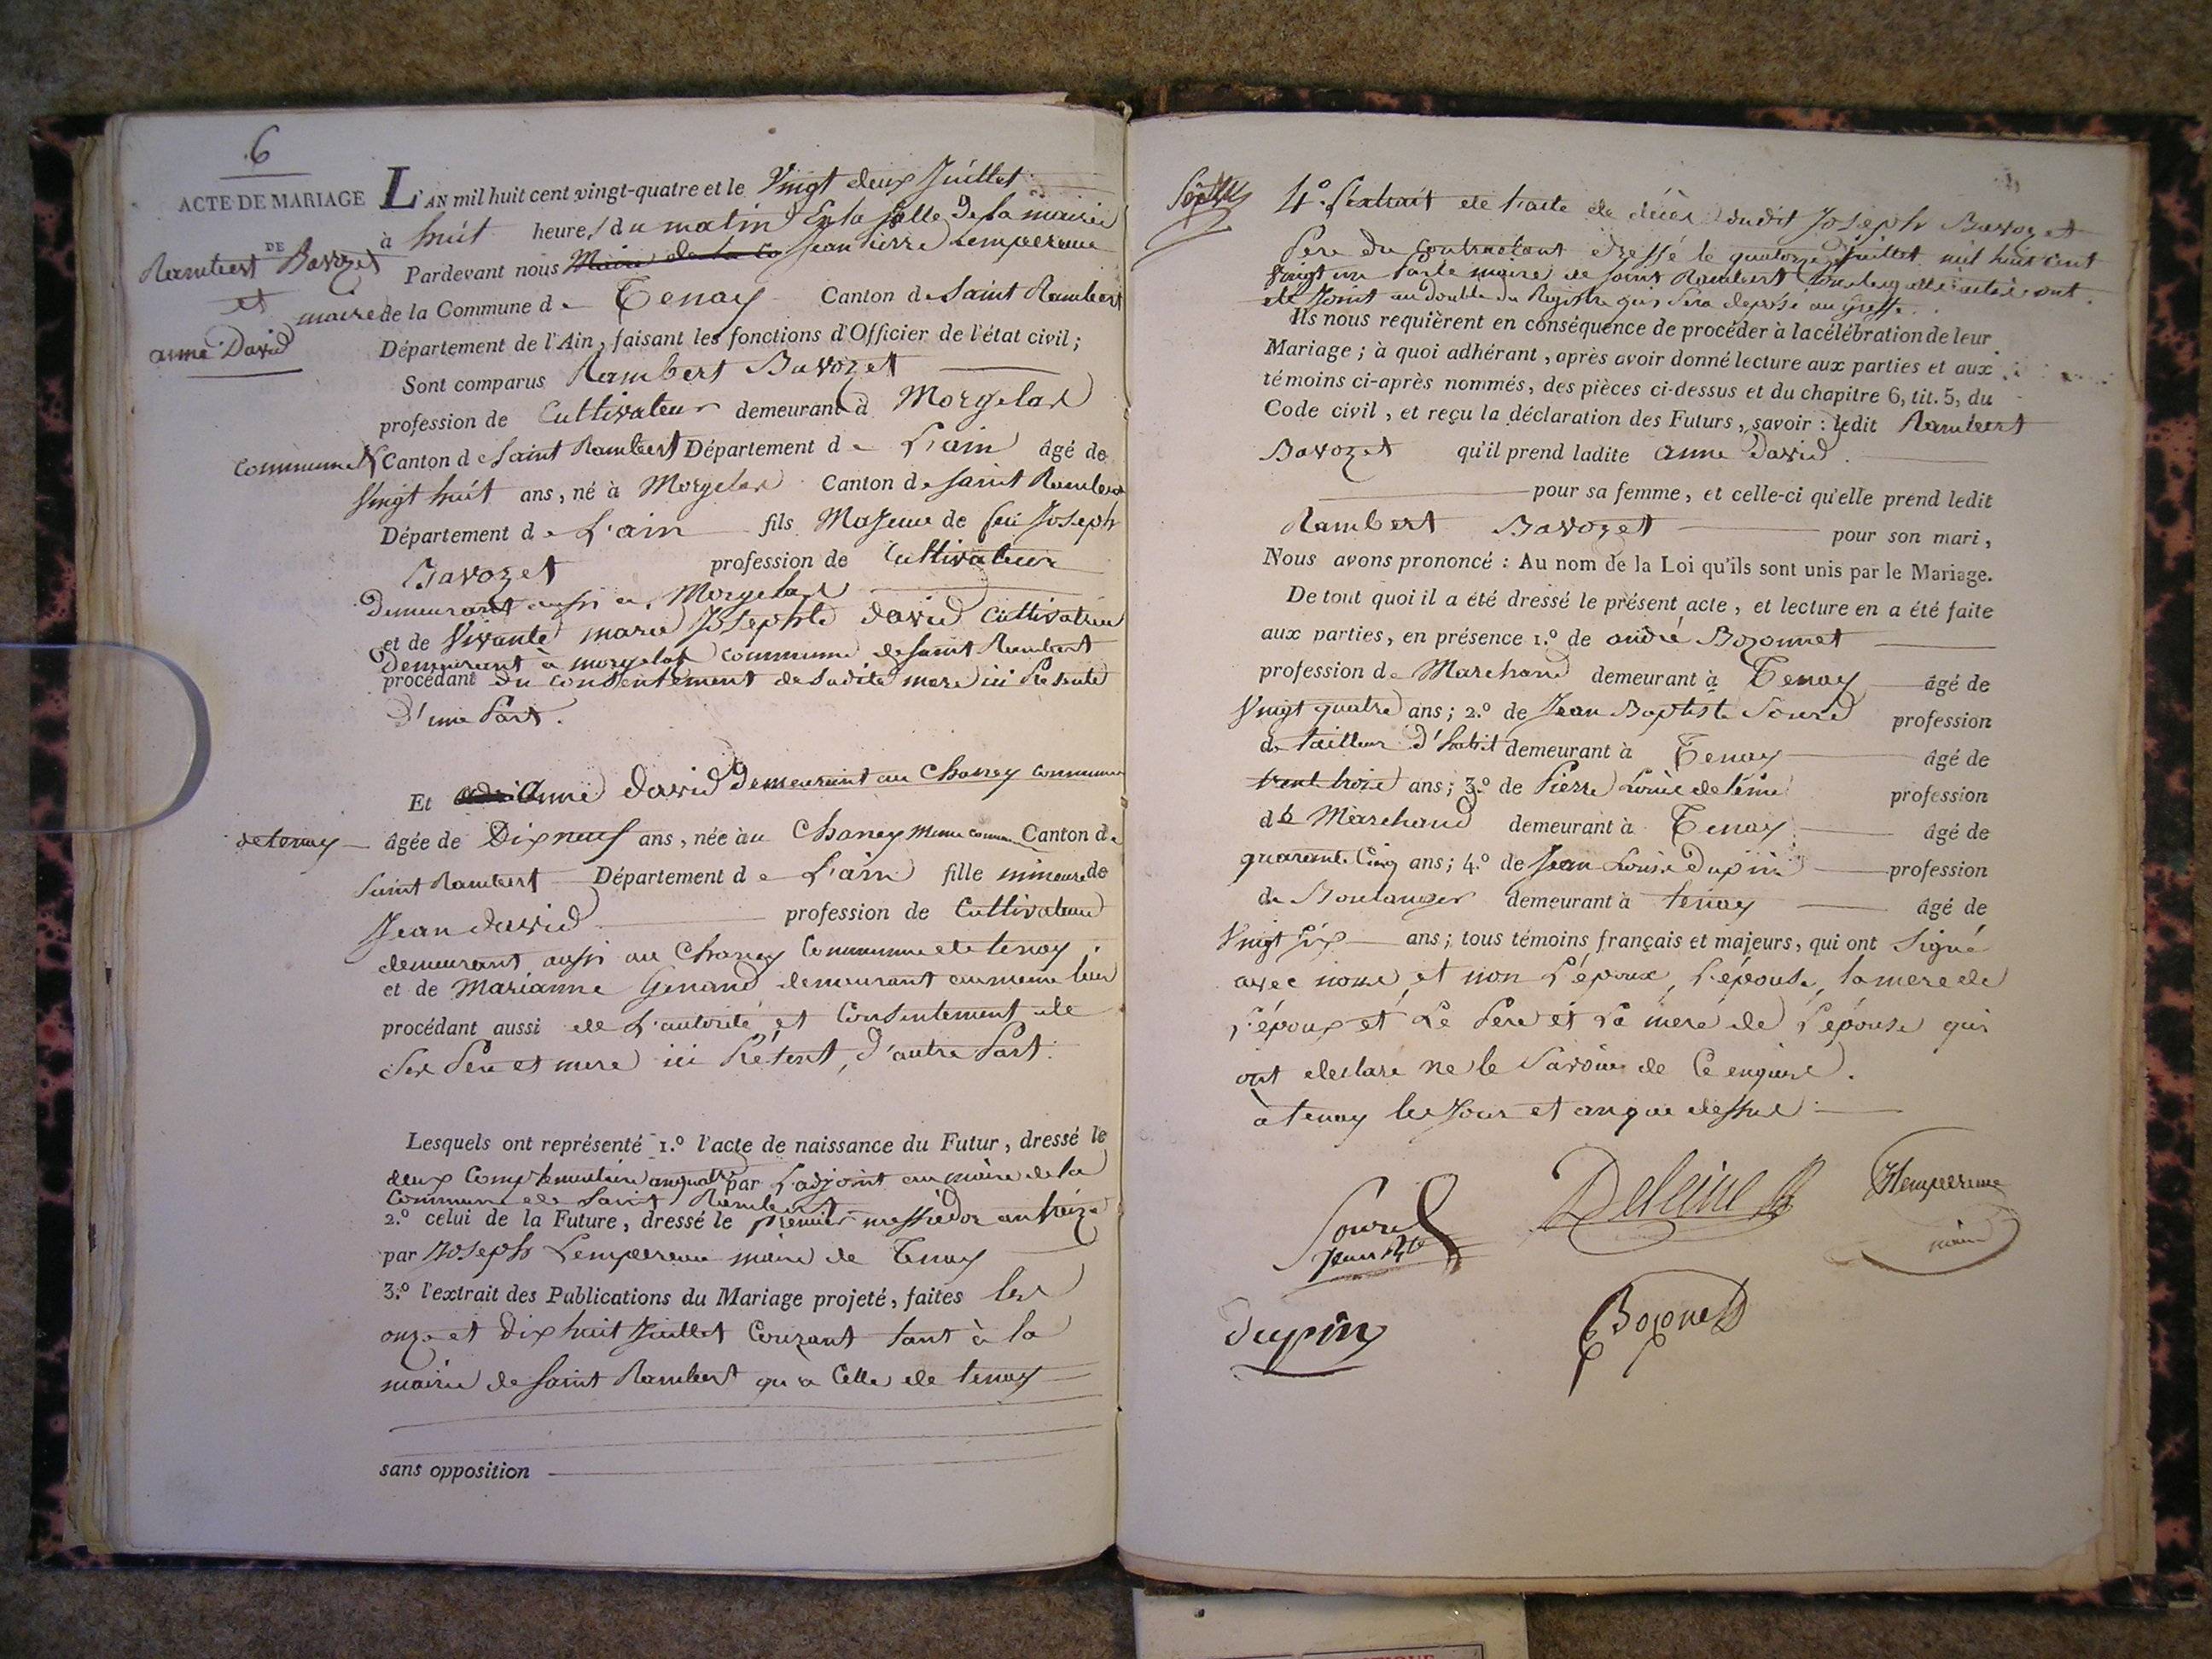 6
ACTE DE MARIAGE
DE
Rambert Bavozet
et
anne David
L'AN mil huit cent vingt-quatre et le Vingt deux Juillet
à huit heures du matin En la salle de la mairie
Pardevant nous Maire de la Co Jean Pierre Lempereur
maire de la Commune de Tenay Canton de Saint Rambert
Département de l'Ain, faisant les fonctions d'Officier de l'état civil;
Sont comparus Rambert Bavozet
profession de Cultivateur demeurant à Morgelas
commune de Canton de Saint Rambert Département de L'ain âgé de
Vingt huit ans, né à Morgelas Canton de Saint Rambert
Département de L'ain fils Majeur de feu Joseph
Bavozet profession de Cultivateur
Demeurant aussi a Morgelas
et de Vivante marie Josephte david Cultivatrice
Demeurant à morgelas commune de saint Rambert
procédant du consentement de sadite mere ici Présente
d'une Part.
Et anne david Demeurant au Chaney commune
de tenay âgée de Dix neuf ans, née au Chaney meme commune Canton de
Saint Rambert Département de L'ain fille mineure de
Jean david profession de Cultivateur
demeurant aussi au Chaney Commune de tenay
et de Marianne Genand demeurant au meme lieu
procédant aussi de L'autorité et Consentement de
Ses Pere et mere ici Présent, d'autre Part.
Lesquels ont représenté 1.º l'acte de naissance du Futur, dressé le
deux Complementaire an quatre par L'adjoint au maire de la
Commune de Saint Rambert
2.º celui de la Future, dressé le premier messidor an treize
par Joseph Lempereur maire de Tenay
3.º l'extrait des Publications du Mariage projeté, faites les
onze et dix huit Juillet Courant tant à la
mairie de Saint Rambert qu'a Celle de tenay
sans opposition
4.º L'extrait de l'acte de décès dudit Joseph Bavozet
Pere du Contractant dressé le quatorze Juillet mil huit cent
Vingt un Par le maire de saint Rambert
de Joint au double du Registre qui Sera déposé au Greffe.
Ils nous requièrent en conséquence de procéder à la célébration de leur
Mariage; à quoi adhérant, après avoir donné lecture aux parties et aux
témoins ci-après nommés, des pièces ci-dessus et du chapitre 6, tit. 5, du
Code civil, et reçu la déclaration des Futurs, savoir: ledit Rambert
Bavozet qu'il prend ladite anne David
pour sa femme, et celle-ci qu'elle prend ledit
Rambert Bavozet pour son mari,
Nous avons prononcé: Au nom de la Loi qu'ils sont unis par le Mariage.
De tout quoi il a été dressé le présent acte, et lecture en a été faite
aux parties, en présence 1.º de andré Bozonnet
profession de Marchand demeurant à Tenay âgé de
Vingt quatre ans; 2.º de Jean Baptiste Sourd profession
de tailleur d'habit demeurant à Tenay âgé de
trente troize ans; 3.º de Pierre Louis deleine profession
de Marchand demeurant à Tenay âgé de
quarante Cinq ans; 4.º de Jean Louis Dupin profession
de Boulanger demeurant à tenay âgé de
Vingt Six ans; tous témoins français et majeurs, qui ont Signé
avec nous et non L'époux, L'épouse, la mere de
L'époux et Le Pere et La mere de L'épouse qui
ont declare ne le Savoir de Ce enquis.
à tenay les Jour et an que dessus
Sourd
Jean Bte
Deleine
Lempereur
maire
Dupin
Bozonet